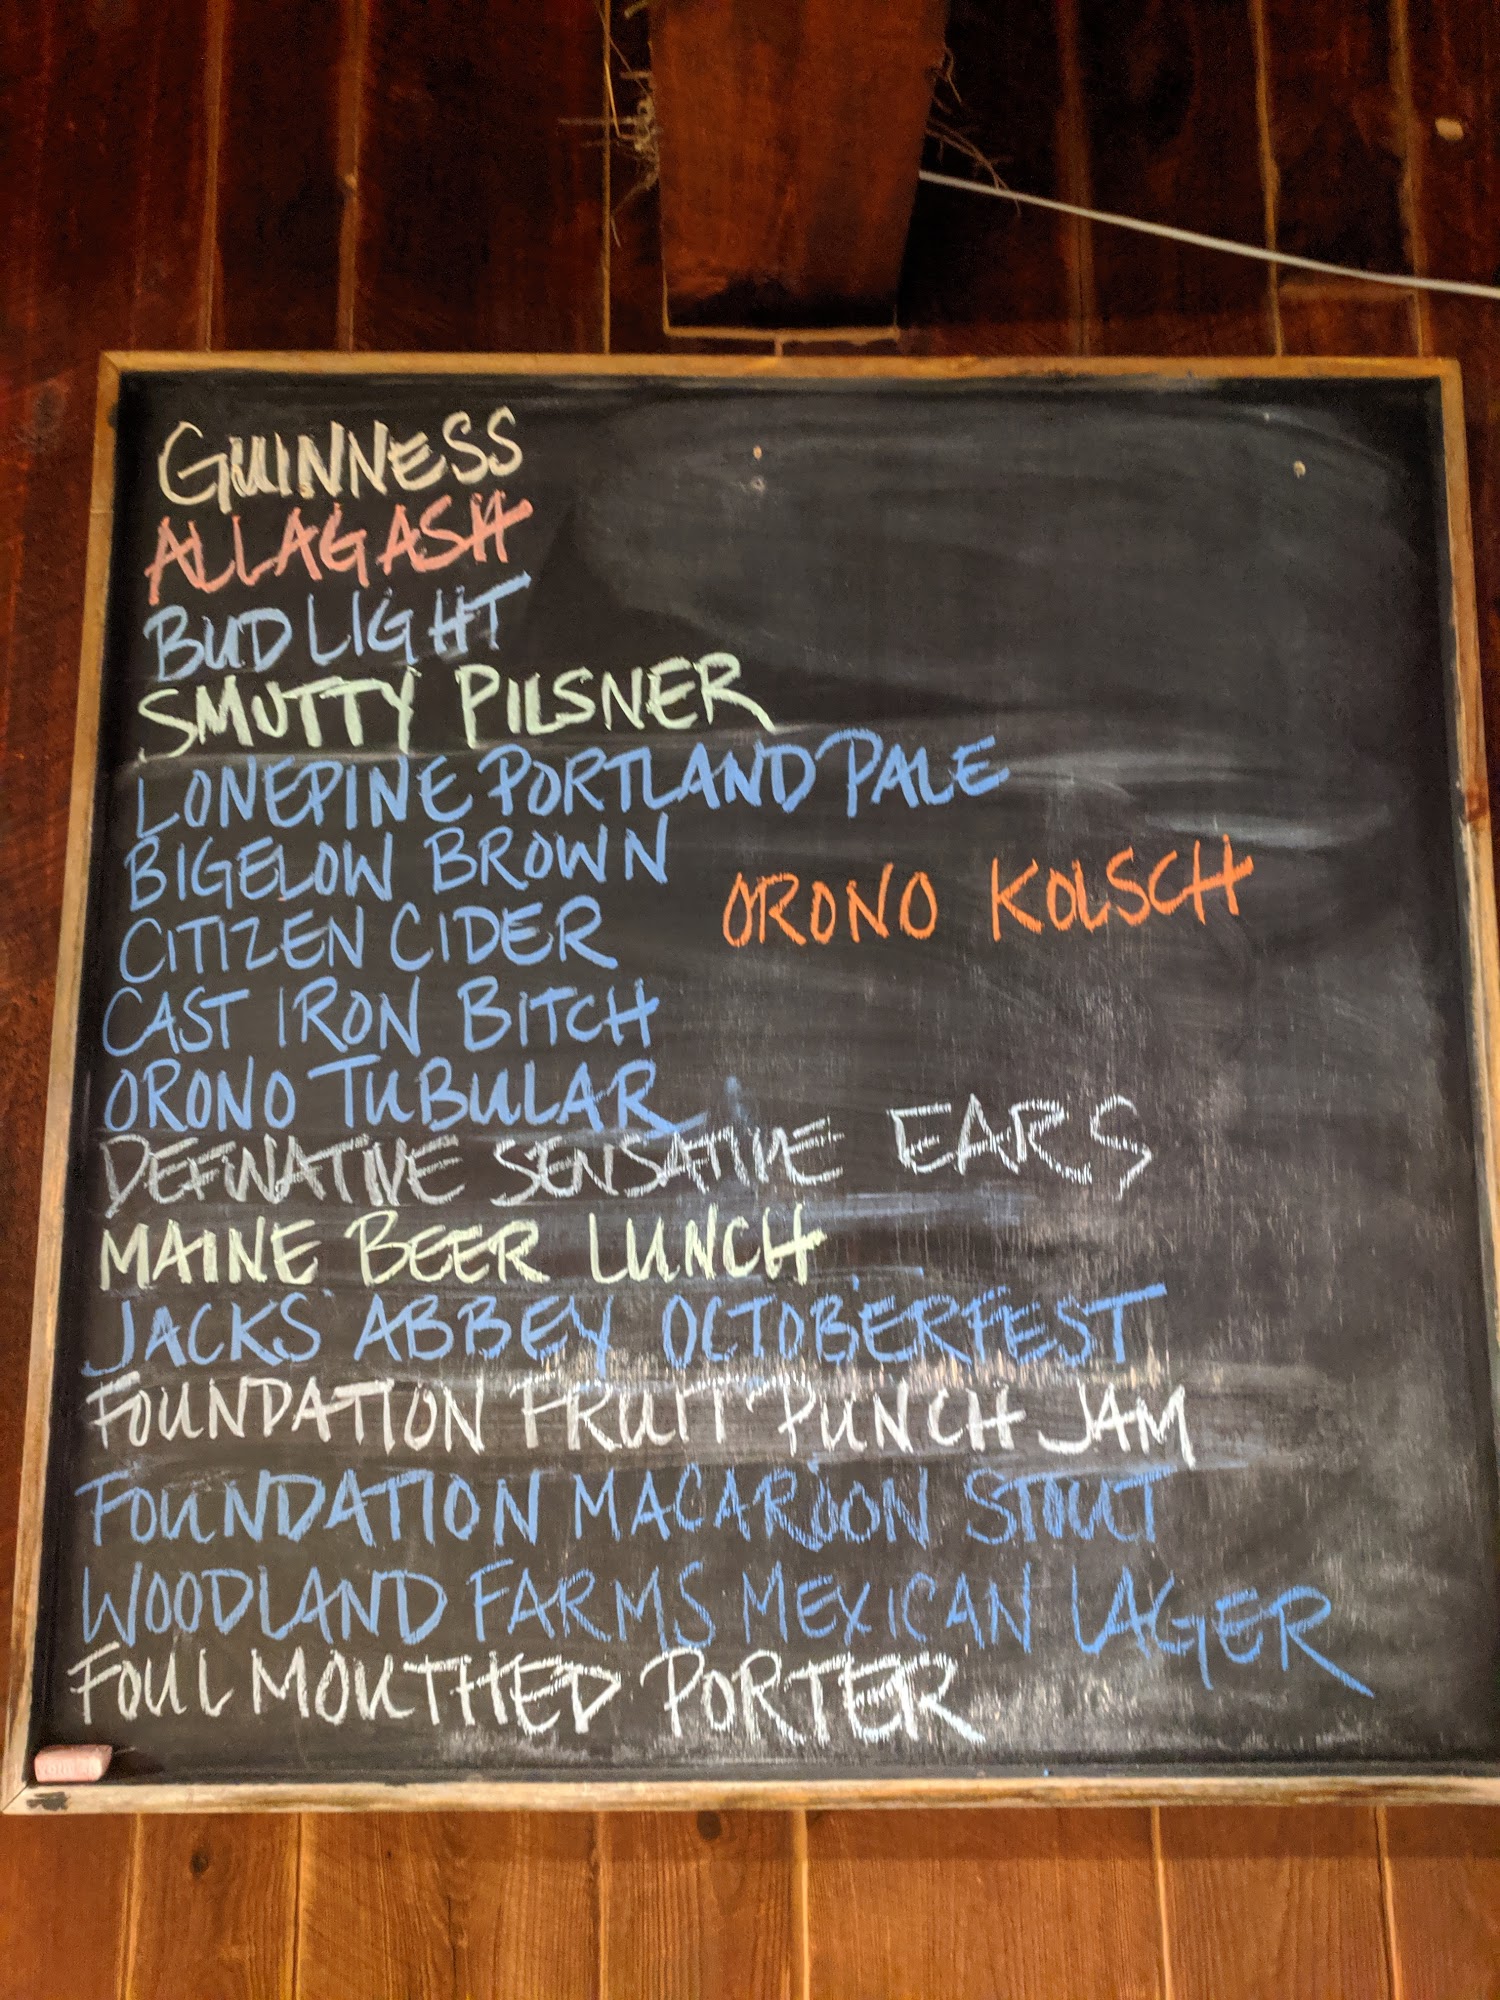 GUINNESS
ALLAGASH
BUD LIGHT
SMUTTY PILSNER
LONEPINE PORTLAND PALE
BIGELOW BROWN
ORONO KOLSCH
CITIZEN CIDER
CAST IRON BITCH
ORONO TUBULAR
DEFINATIVE SENSATIVE EARS
MAINE BEER LUNCH
JACKS ABBEY OCTOBERFEST
FOUNDATION FRUIT PUNCH JAM
FOUNDATION MACAROON STOUT
WOODLAND FARMS MEXICAN LAGER
FOUL MOUTHED PORTER